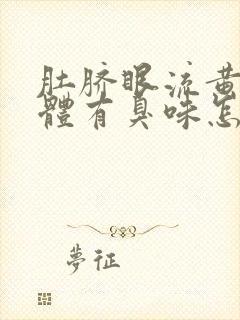 肚脐眼流黄
體有臭味怎
夢征